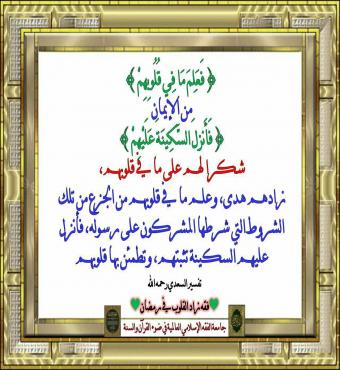 ﴿ فَعَلِمَ مَا فِي قُلُوبِهِمْ ﴾
مِنَ الإِيمَانِ
﴿ فَأَنزَلَ السَّكِينَةَ عَلَيْهِمْ ﴾
شكرا لهم على ما في قلوبهم،
زادهم هدى، وعلم ما في قلوبهم من الجزع من تلك
الشروط التي شرطها المشركون على رسوله، فأنزل
عليهم السكينة تثبتهم، وتطمئن بها قلوبهم
تفسير السعدي رحمه الله
فقه زاد القلوب في رمضان
جامعة الفقه الإسلامي العالمية في ضوء القرآن والسنة